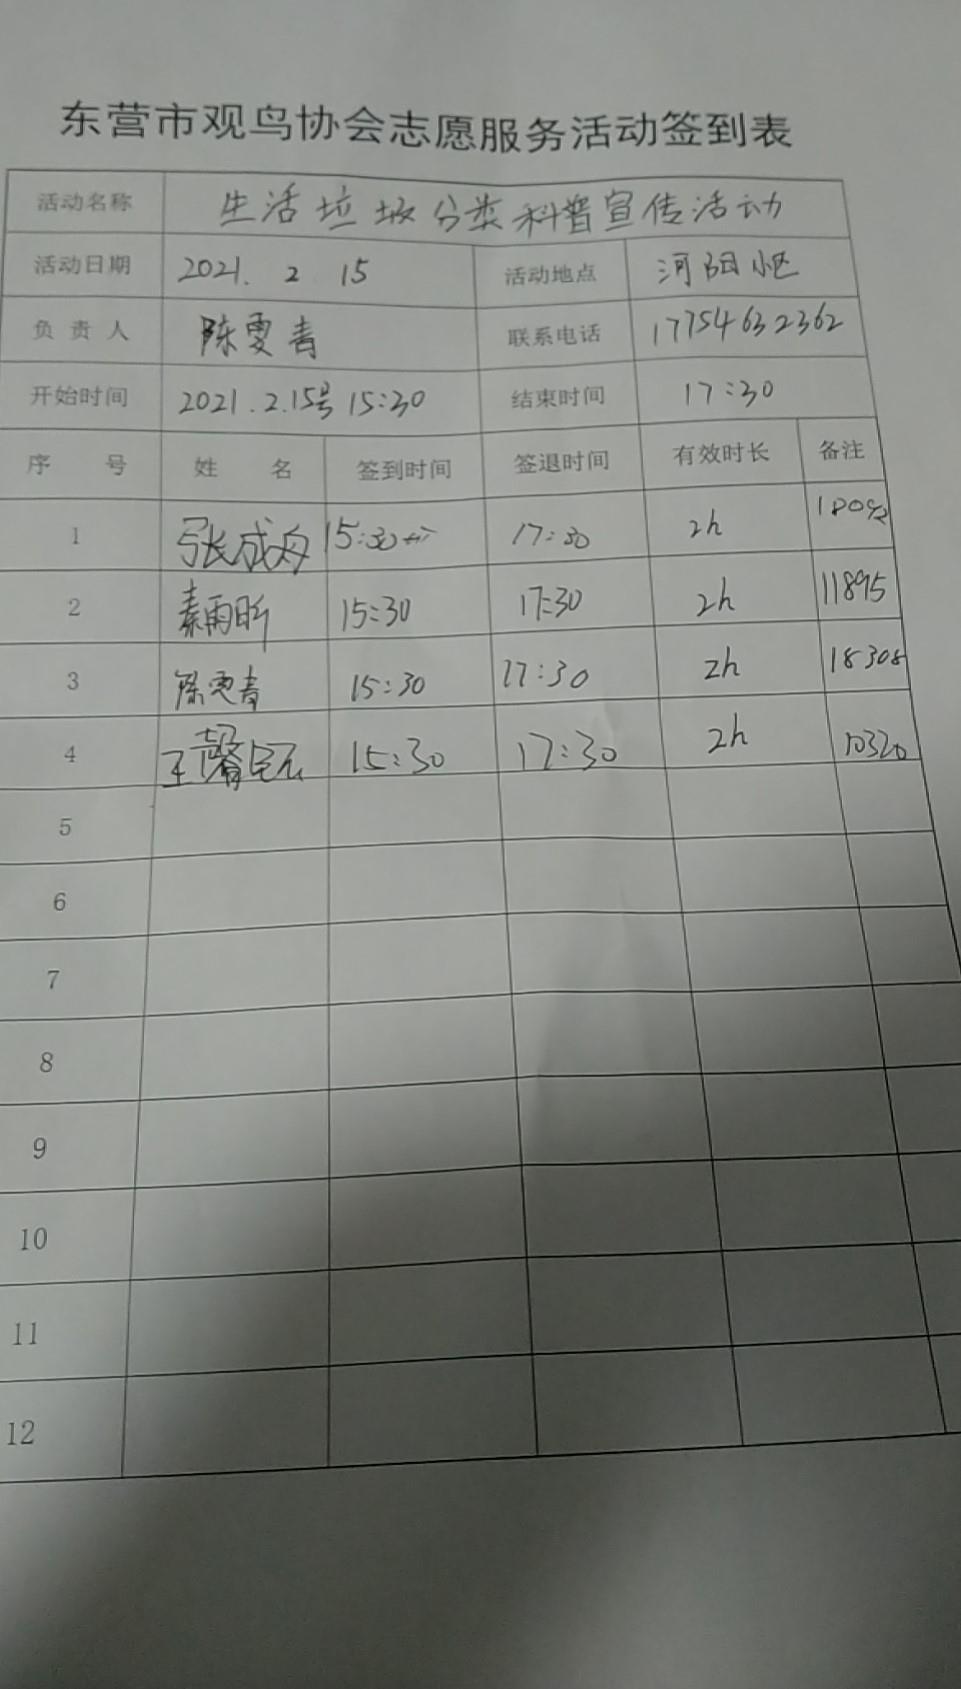 东营市观鸟协会志愿服务活动签到表
活动名称 生活垃圾分类科普宣传活动
活动日期 2021. 2 15 活动地点 河阳小区
负责人 陈雯青 联系电话 17754632362
开始时间 2021.2.15号 15:30 结束时间 17:30
序号 姓名 签到时间 签退时间 有效时长 备注
1 张成舟 15:30 17:30 2h
2 秦雨昕 15:30 17:30 2h 11895
3 陈雯青 15:30 17:30 2h 18308
4 王馨 15:30 17:30 2h 10320
5
6
7
8
9
10
11
12